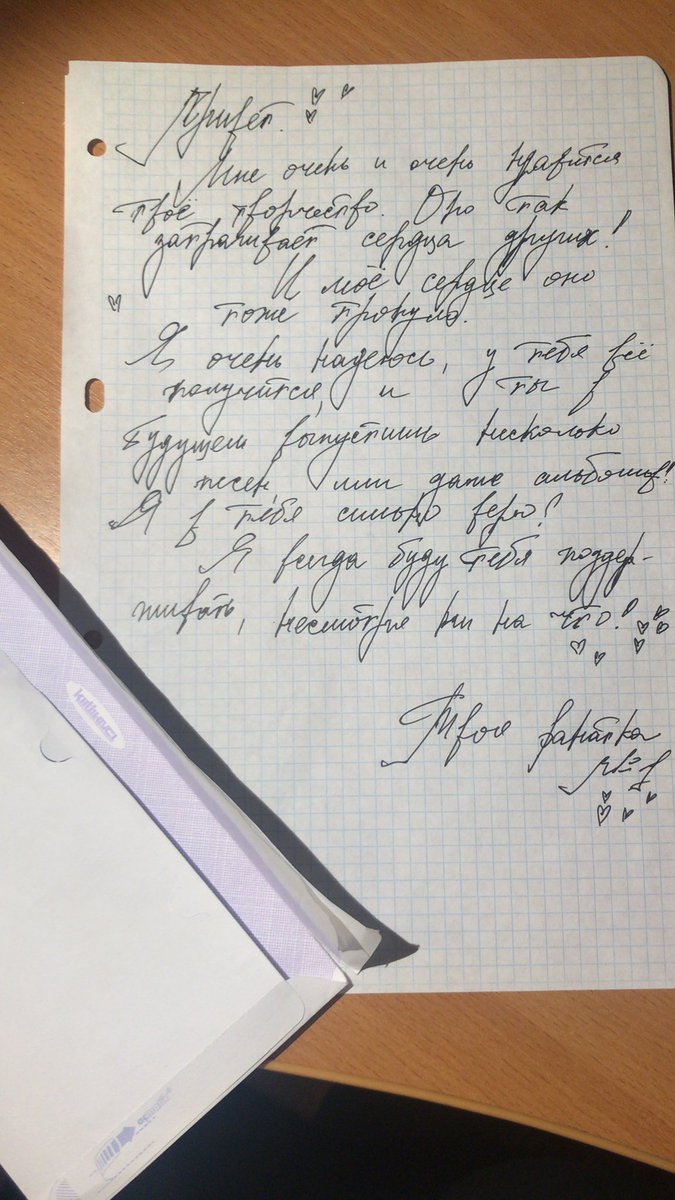 Привет.
Мне очень и очень нравится
твоё творчество. Оно так
затрачивает сердца других!
И моё сердце оно
тоже тронуло.
Я очень надеюсь, у тебя всё
получится, и ты в
будущем выпустишь несколько
песен, или даже альбомов!
Я в тебя сильно верю!
Я всегда буду тебя поддер-
живать, несмотря ни на что!
Твоя фанатка
№1